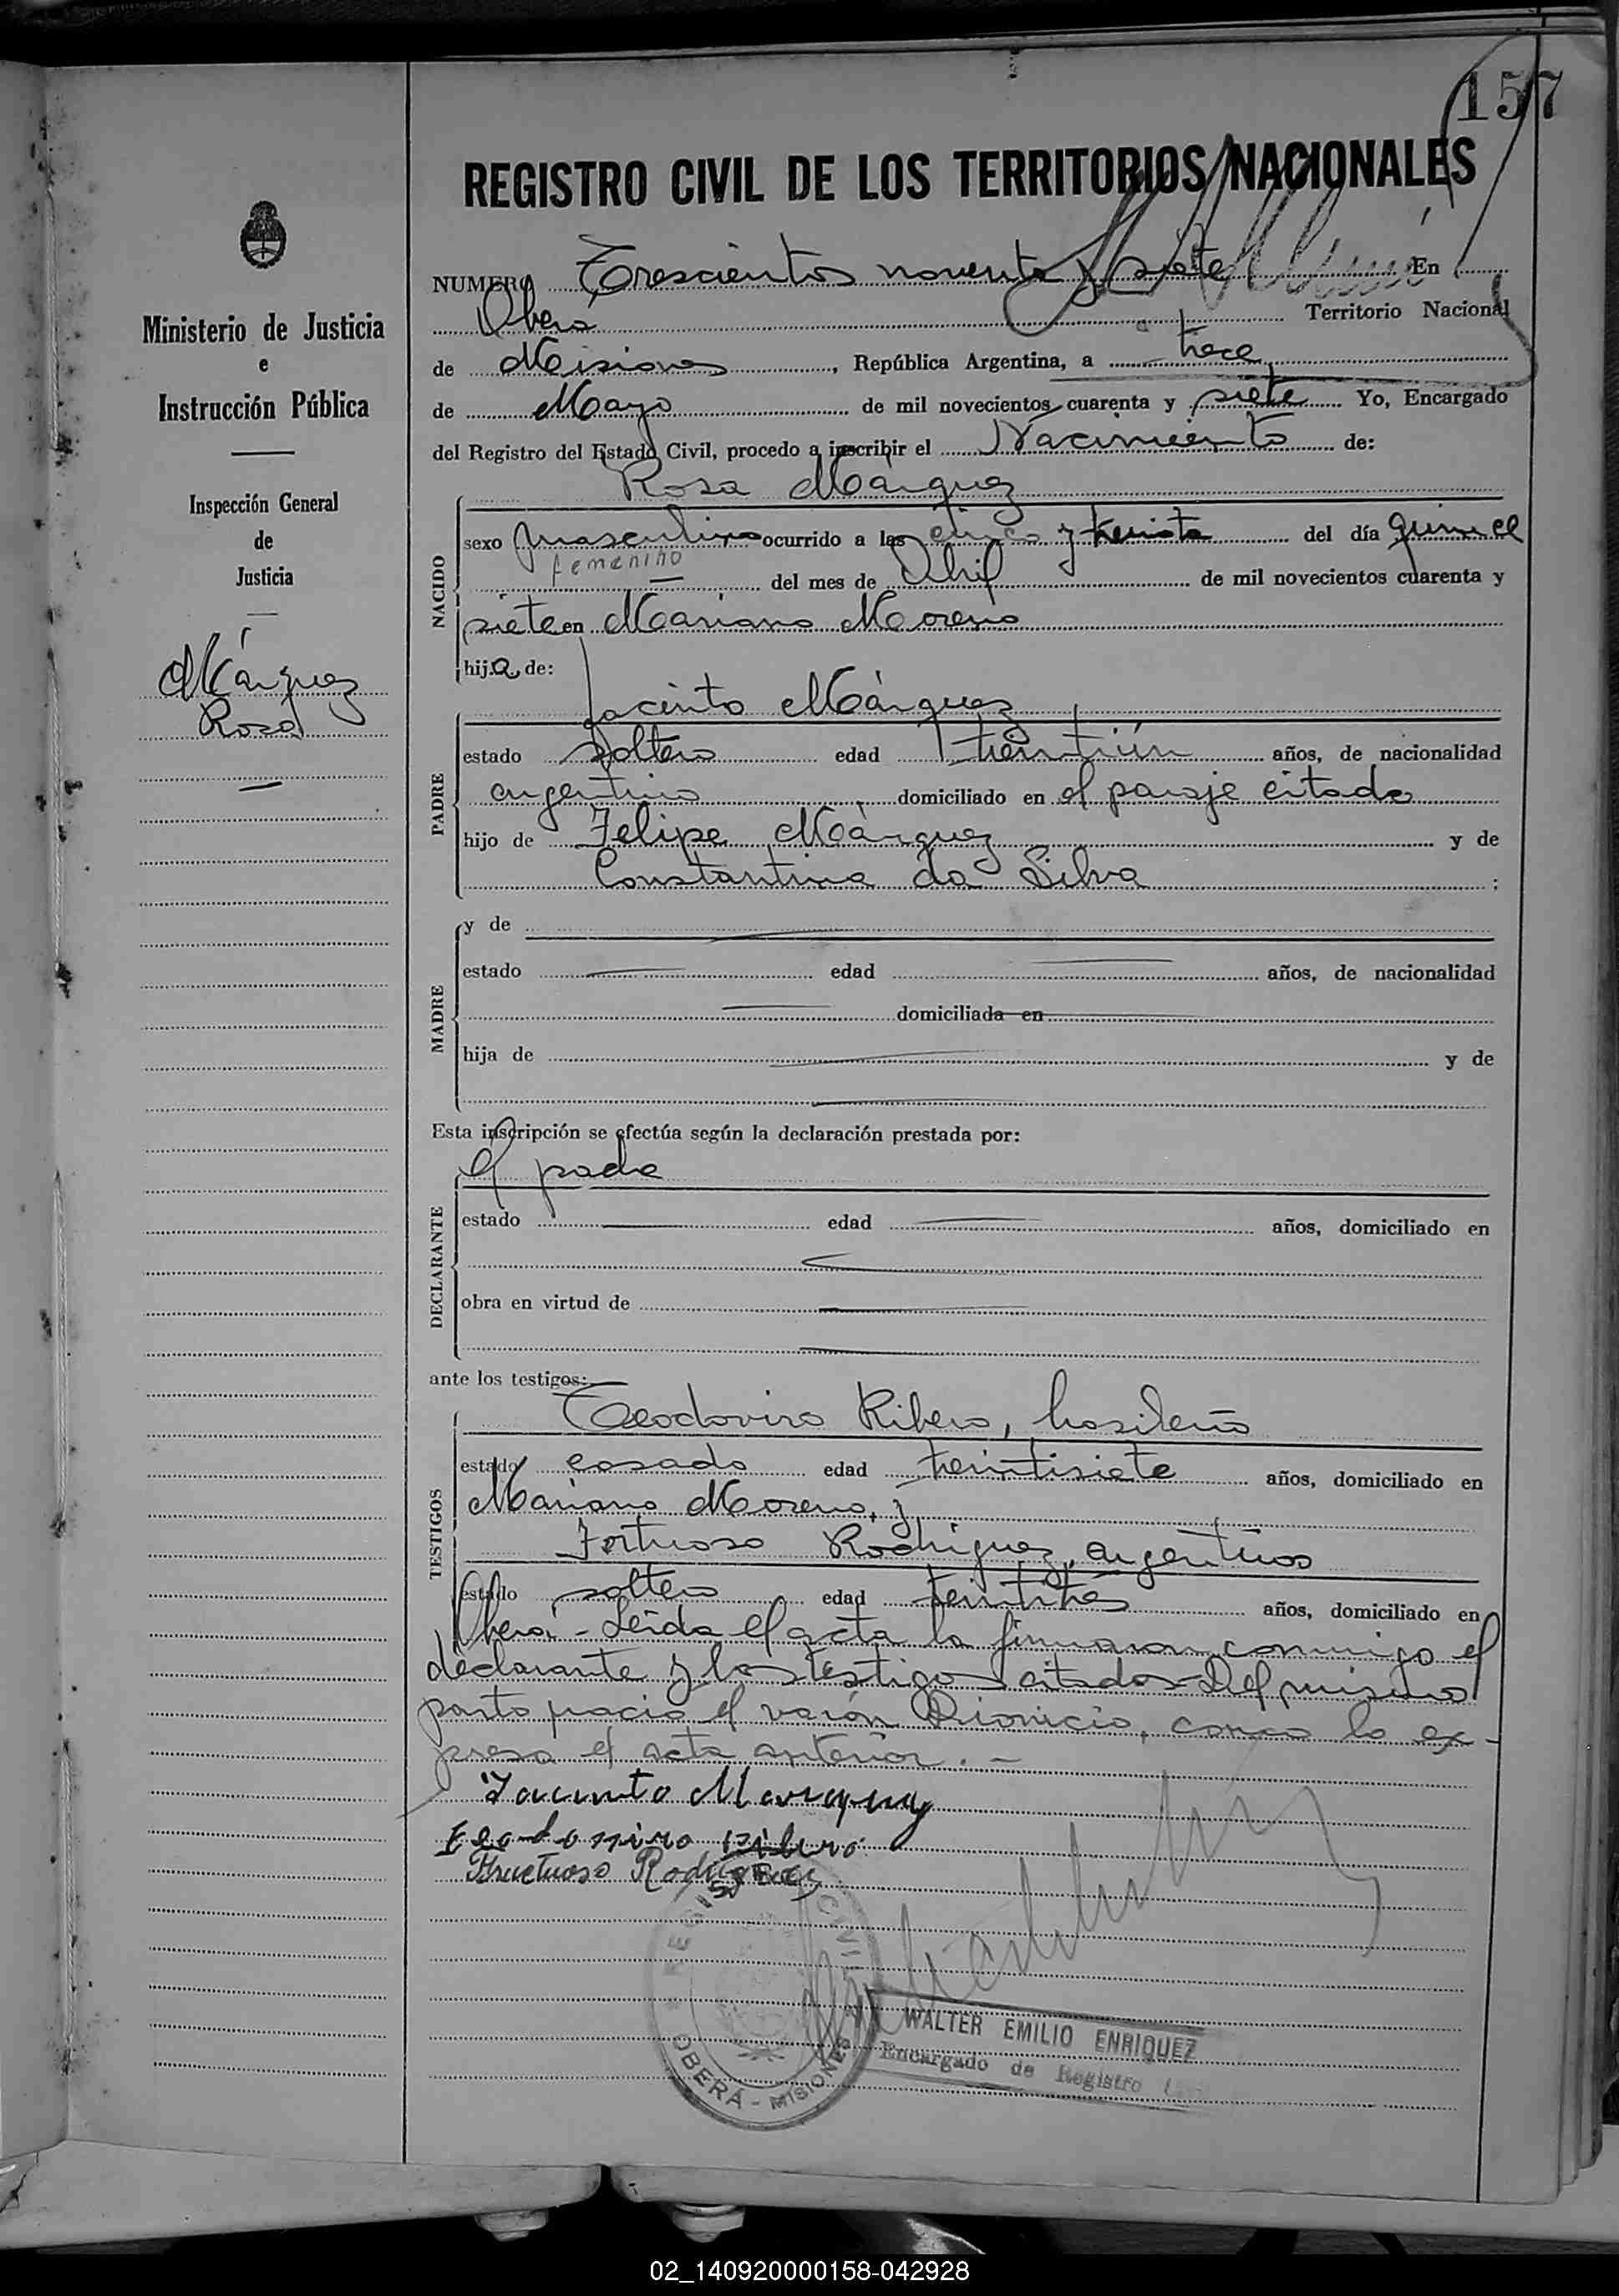 157
REGISTRO CIVIL DE LOS TERRITORIOS NACIONALES
Ministerio de Justicia
e
Instrucción Pública
Inspección General
de
Justicia
Márquez
Rosa
NUMERO Trescientos noventa y siete En
Oberá Territorio Nacional
de Misiones, República Argentina, a trece
de Mayo de mil novecientos cuarenta y siete Yo, Encargado
del Registro del Estado Civil, procedo a inscribir el Nacimiento de:
Rosa Márquez
NACIDO
sexo masculino ocurrido a las cinco y treinta del día quince
femenino
del mes de Abril de mil novecientos cuarenta y
siete en Mariano Moreno
hija de:
Jacinto Márquez
PADRE
estado soltero edad treintiún años, de nacionalidad
argentino domiciliado en el paraje citado
hijo de Felipe Márquez y de
Constantina da Silva;
MADRE
y de
estado edad años, de nacionalidad
domiciliada en
hija de y de
Esta inscripción se efectúa según la declaración prestada por:
el padre
DECLARANTE
estado edad años, domiciliado en
obra en virtud de
ante los testigos:
Teodoviro Ribero, brasileño
TESTIGOS
estado casado edad treintisiete años, domiciliado en
Mariano Moreno, y
Fortuoso Rodríguez, argentino
estado soltero edad treintitrés años, domiciliado en
Oberá.- Leída el acta la firmaron conmigo el
declarante y los testigos citados. Del mismo
parto nació el varón Dionicio, como lo ex-
presa el acta anterior.-
Jacinto Marquez
Teodoviro Ribero
Fructuoso Rodriguez
REGISTRO CIVIL
OBERA - MISIONES
WALTER EMILIO ENRIQUEZ
Encargado de Registro
02_140920000158-042928